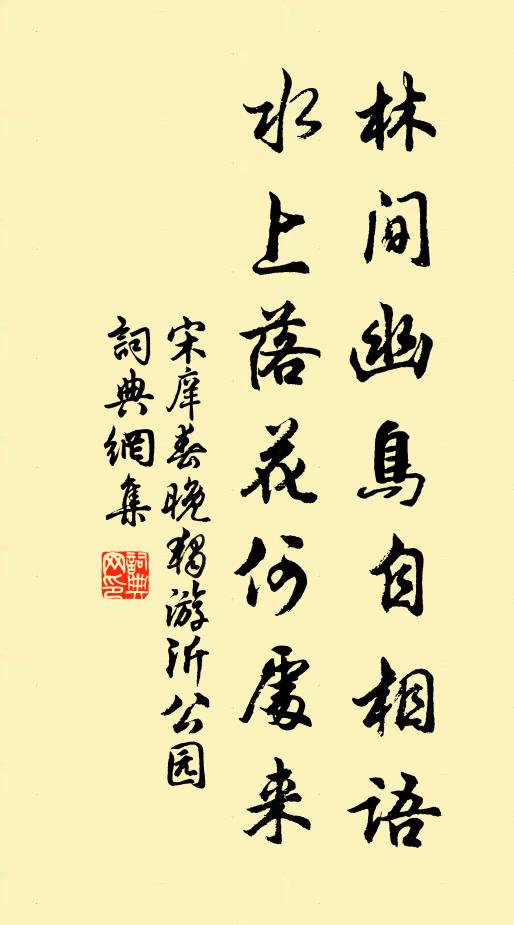 林間幽鳥自相语
水上落花何處来
宋庠春晚獨游沂公园
詞典網集
詞典網印